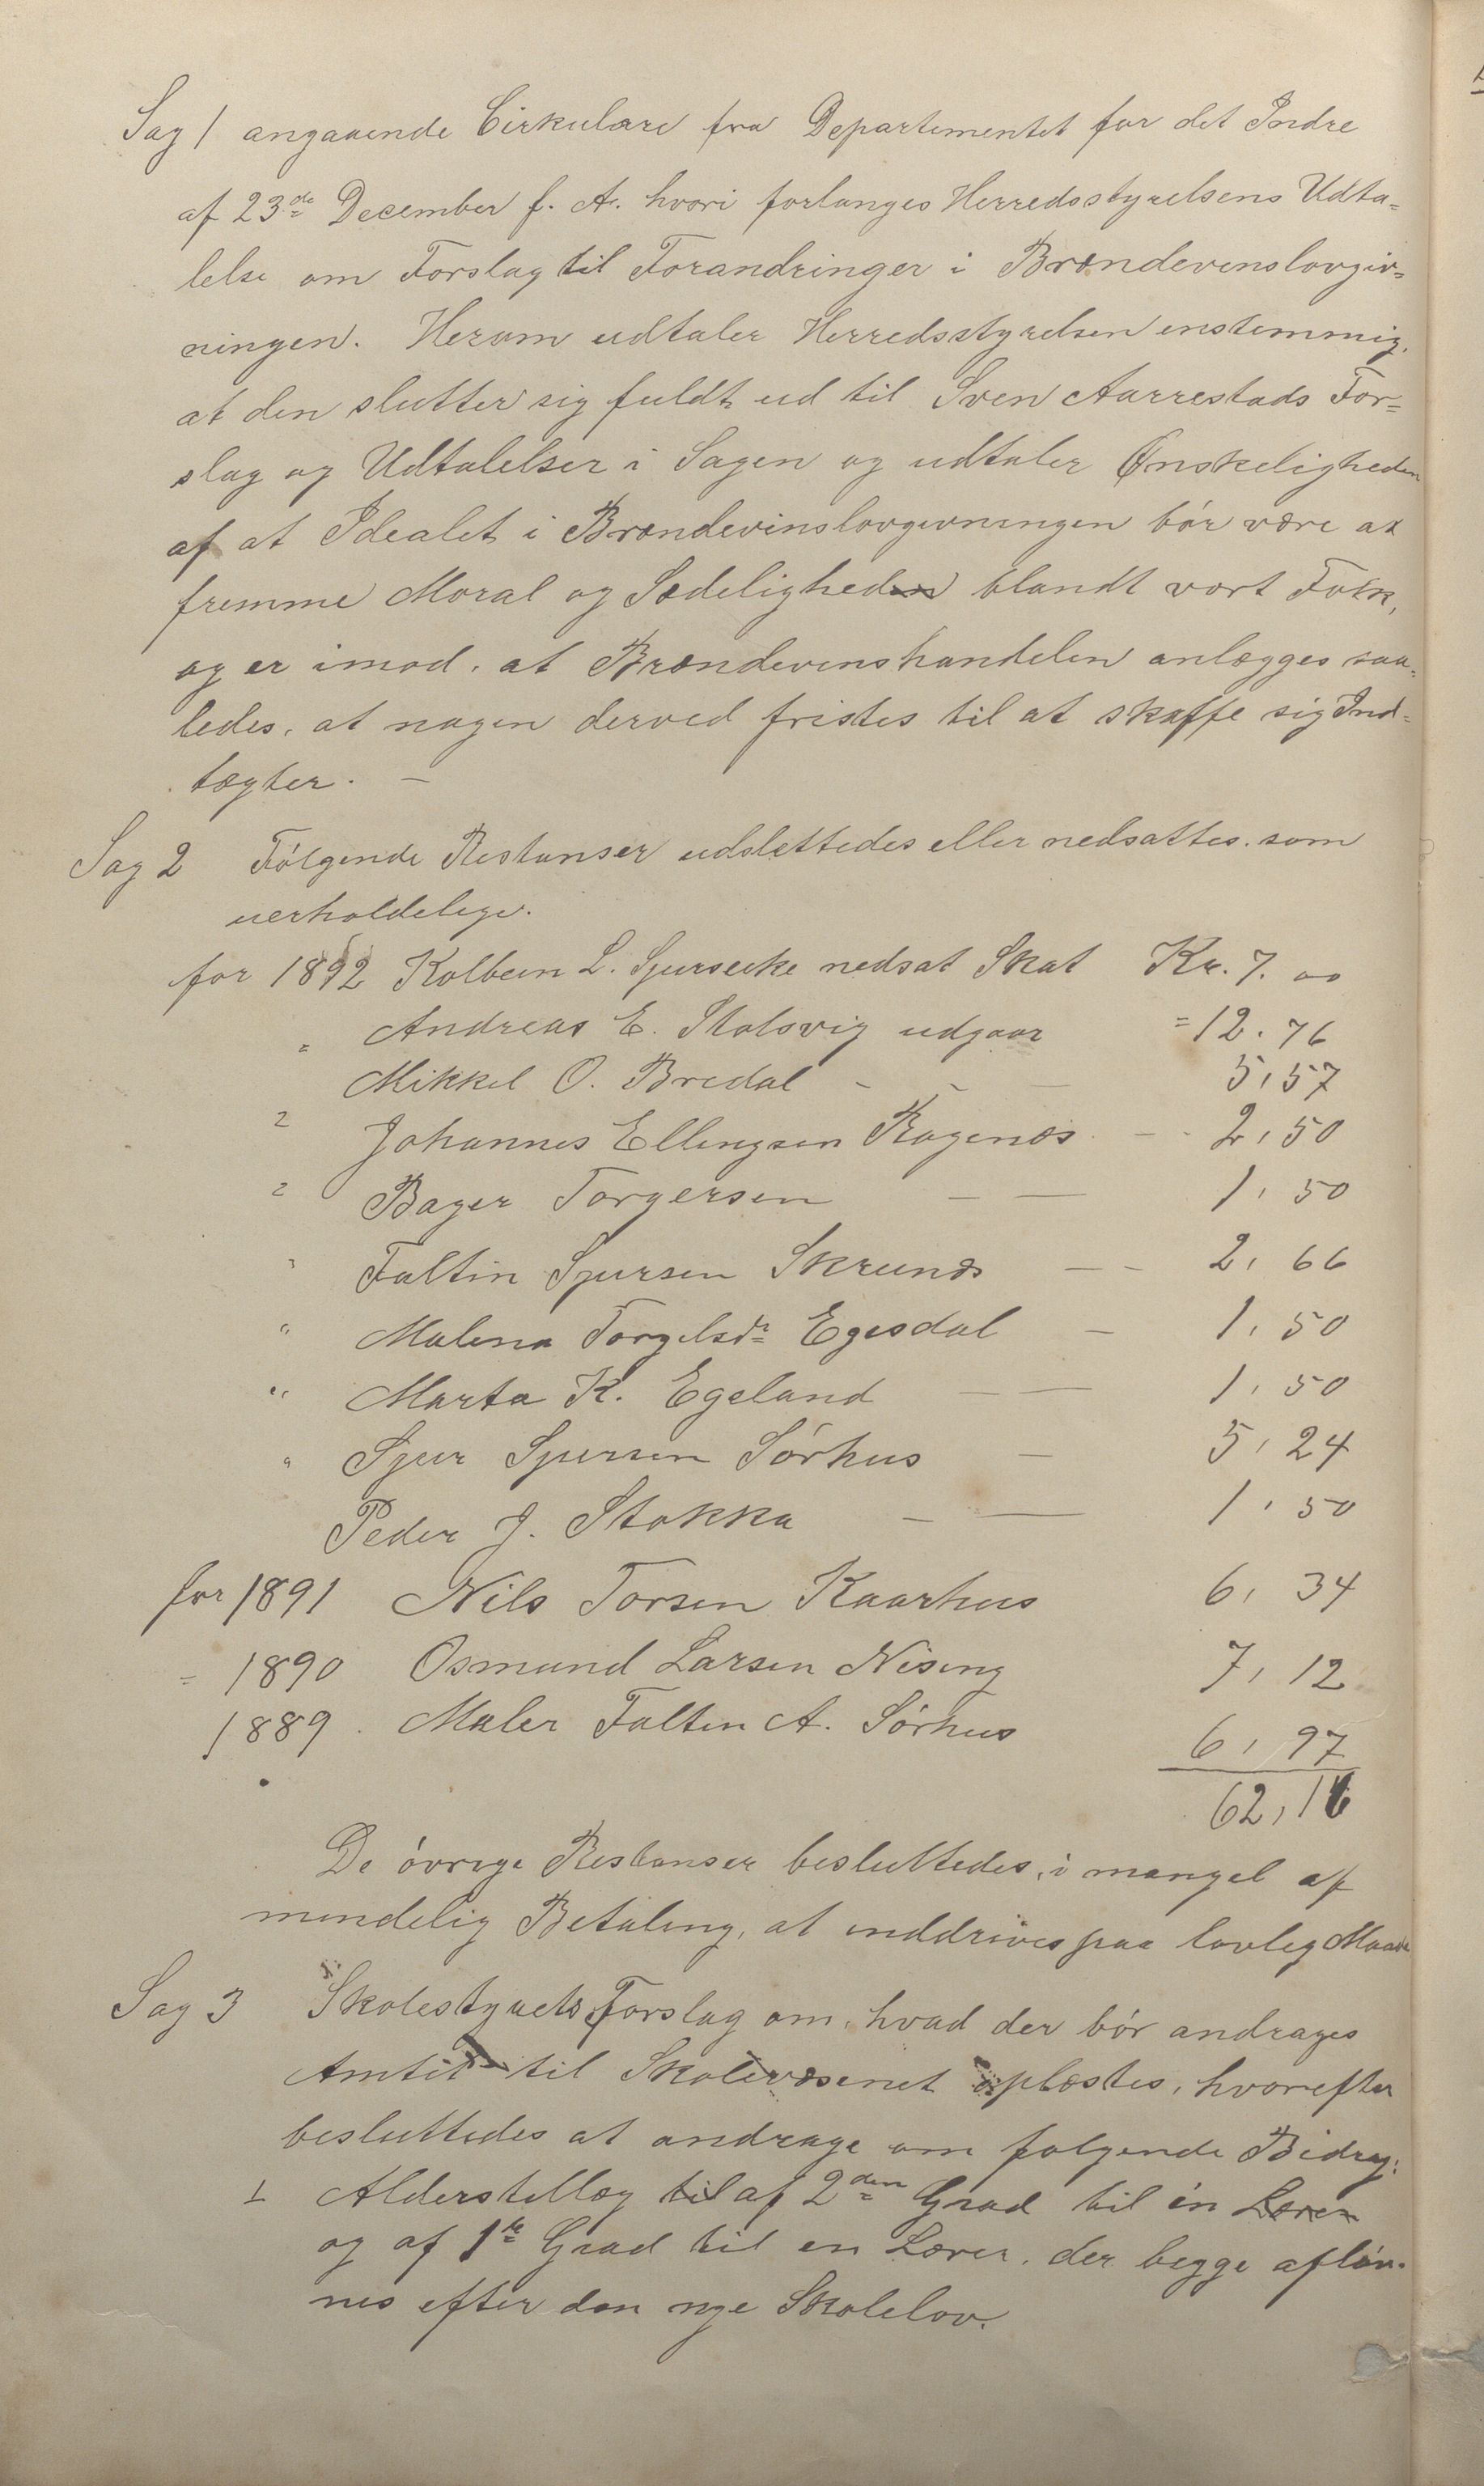 Sag 1 angaaende Cirkulære fra Departementet for det Indre
af 23de December f. A. hvori forlanges Herredsstyrelsens Udta=
lelse om Forslag til Forandringer i Brændevinslovgiv=
ningen. Herom udtaler Herredsstyrelsen enstemmig,
at den slutter sig fuldt ud til Sven Aarrestads For=
slag og Udtalelser i Sagen og udtaler Ønskeligheden
af at Idealet i Brændevinslovgivningen bør være at
fremme Moral og Sædelighed blandt vort Folk,
og er imod, at Brændevinshandelen anlægges saa=
ledes, at nogen derved fristes til at skaffe sig Ind=
tægter. —
Sag 2 Følgende Restanser udslettedes eller nedsattes som
uerholdelige.
for 1892 Kolbein L. Sjurseike nedsat Skat Kr. 7. 00
" Andreas E. Stolsvig udgaar = 12. 76
Mikkel O. Bredal - - — 5, 57
" Johannes Ellingsen Ragenæs — - 2, 50
" Bager Torgersen — — 1, 50
" Faltin Sjursen Skrunæs — - 2, 66
" Malena Torgelsdr Egesdal — 1, 50
" Marta K. Egeland — — 1, 50
" Sjur Sjursen Sørhus — 5, 24
Peder J. Stokka — — 1, 50
for 1891 Nils Torsen Kaarhus 6, 34
= 1890 Osmund Larsen Nising 7, 12
1889. Maler Faltin A. Sørhus 6, 97
62, 16
De øvrige Restanser besluttedes, i mangel af
mindelig Betaling, at inddrives paa lovlig Maade
Sag 3 Skolestyrets Forslag om, hvad der bør andrages
Amtet til Skolevæsenet oplæstes, hvorefter
besluttedes at andrage om følgende Bidrag:
1 Alderstillæg til af 2den Grad til én Lærer
og af 1ste Grad til en Lærer, der begge afløn=
nes efter den nye Skolelov.